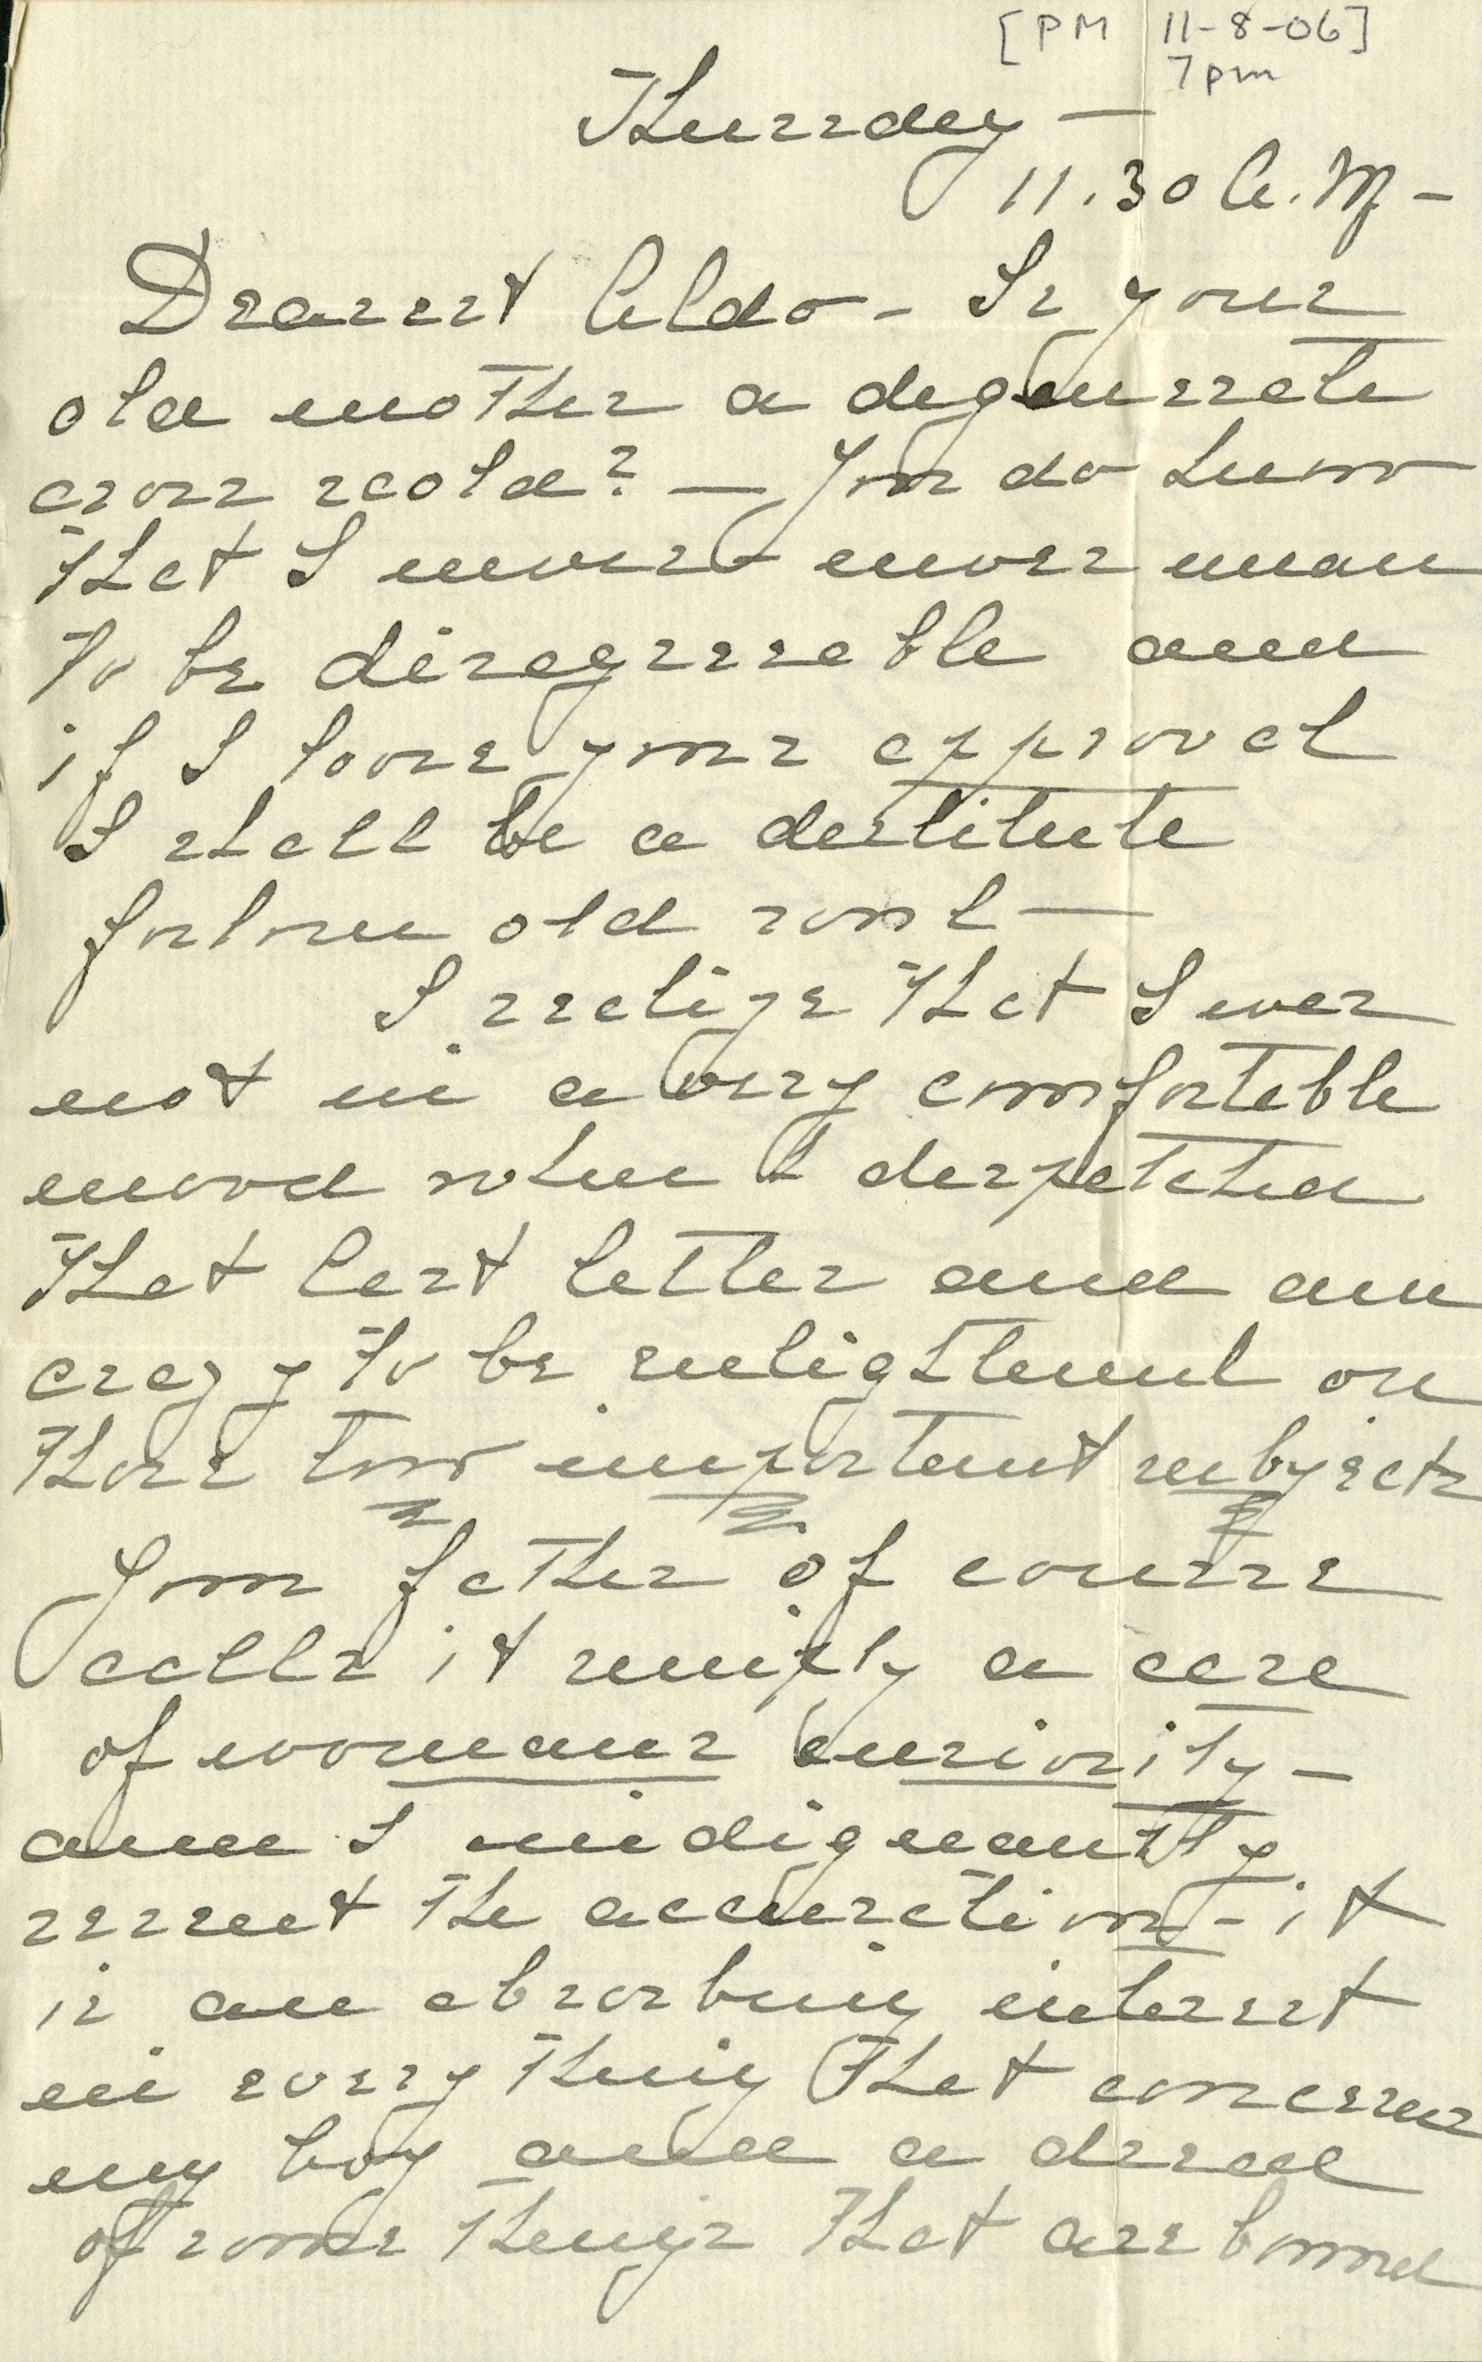 [PM 11-8-06]
7pm
Thursday —
11.30 A.M —
Dearest Aldo — Is your
old mother a degenerate
cross scold? — You do know
that I never never mean
to be disagreeable and
if I loose your approval
I shall be a destitute
forlorn old soul —
I realize that I was
not in a very comfortable
mood when I despatched
that last letter and am
crazy to be enlightened on
those two important subjects
Your father of course
calls it simply a case
of womans curiosity —
and I indignantly
resent the accusation — it
is an absorbing interest
in every thing that concerns
my boy and a dread
of some things that are bound